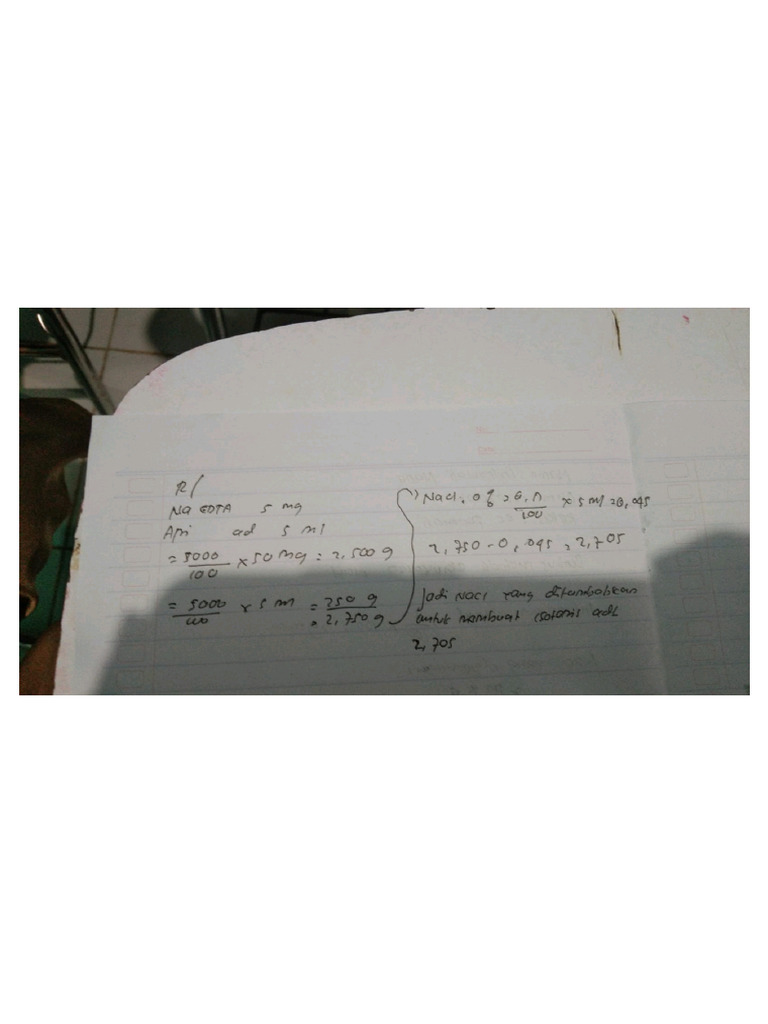 R/
Na EDTA 5 mg
Api ad 5 ml
= 5000/100 x 50 mg = 2,500 g
= 5000/100 x 5 m = 250 g
= 2,750 g
NaCl. 0,9 = 0,9/100 x 5 ml = 0,045
2,750 - 0,045 = 2,705
Jadi NaCl yang ditambahkan
untuk membuat isotonis adl
2,705